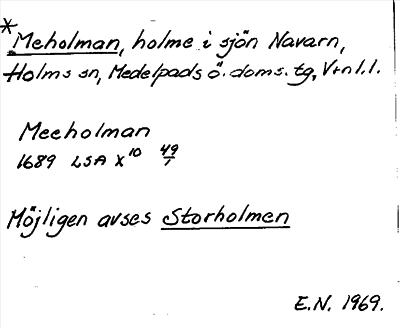 *Meholman, holme i sjön Navarn,
Holms sn, Medelpads ö. doms. tg, Vtnl.l.
Meeholman
1689 LSA X¹⁰ 49/1
Möjligen avses Storholmen
E.N. 1969.